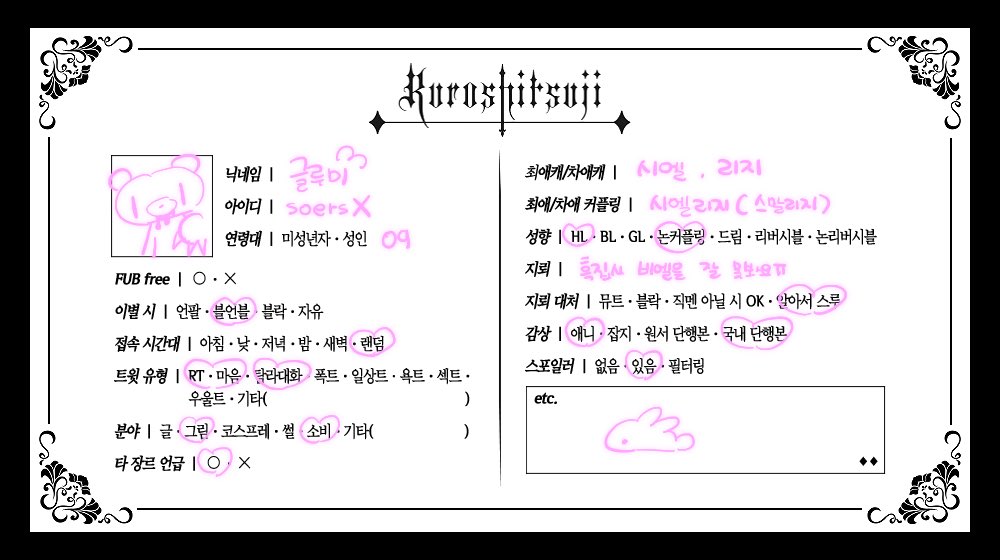 Kuroshitsuji
닉네임 | 글루미
아이디 | soersX
연령대 | 미성년자 · 성인 09
FUB free | ○ · ×
이별 시 | 언팔 · 블언블 · 블락 · 자유
접속 시간대 | 아침 · 낮 · 저녁 · 밤 · 새벽 · 랜덤
트윗 유형 | RT · 마음 · 탐라대화 · 폭트 · 일상트 · 욕트 · 섹트 ·
우울트 · 기타( )
분야 | 글 · 그림 · 코스프레 · 썰 · 소비 · 기타( )
타 장르 언급 | ○ · ×
최애캐/차애캐 | 시엘 , 리지
최애/차애 커플링 | 시엘리지 ( 스말리지 )
성향 | HL · BL · GL · 논커플링 · 드림 · 리버시블 · 논리버시블
지뢰 | 흑집사 비엘물 잘 못봐요ㅠ
지뢰 대처 | 뮤트 · 블락 · 직멘 아닐 시 OK · 알아서 스루
감상 | 애니 · 잡지 · 원서 단행본 · 국내 단행본
스포일러 | 없음 · 있음 · 필터링
etc.